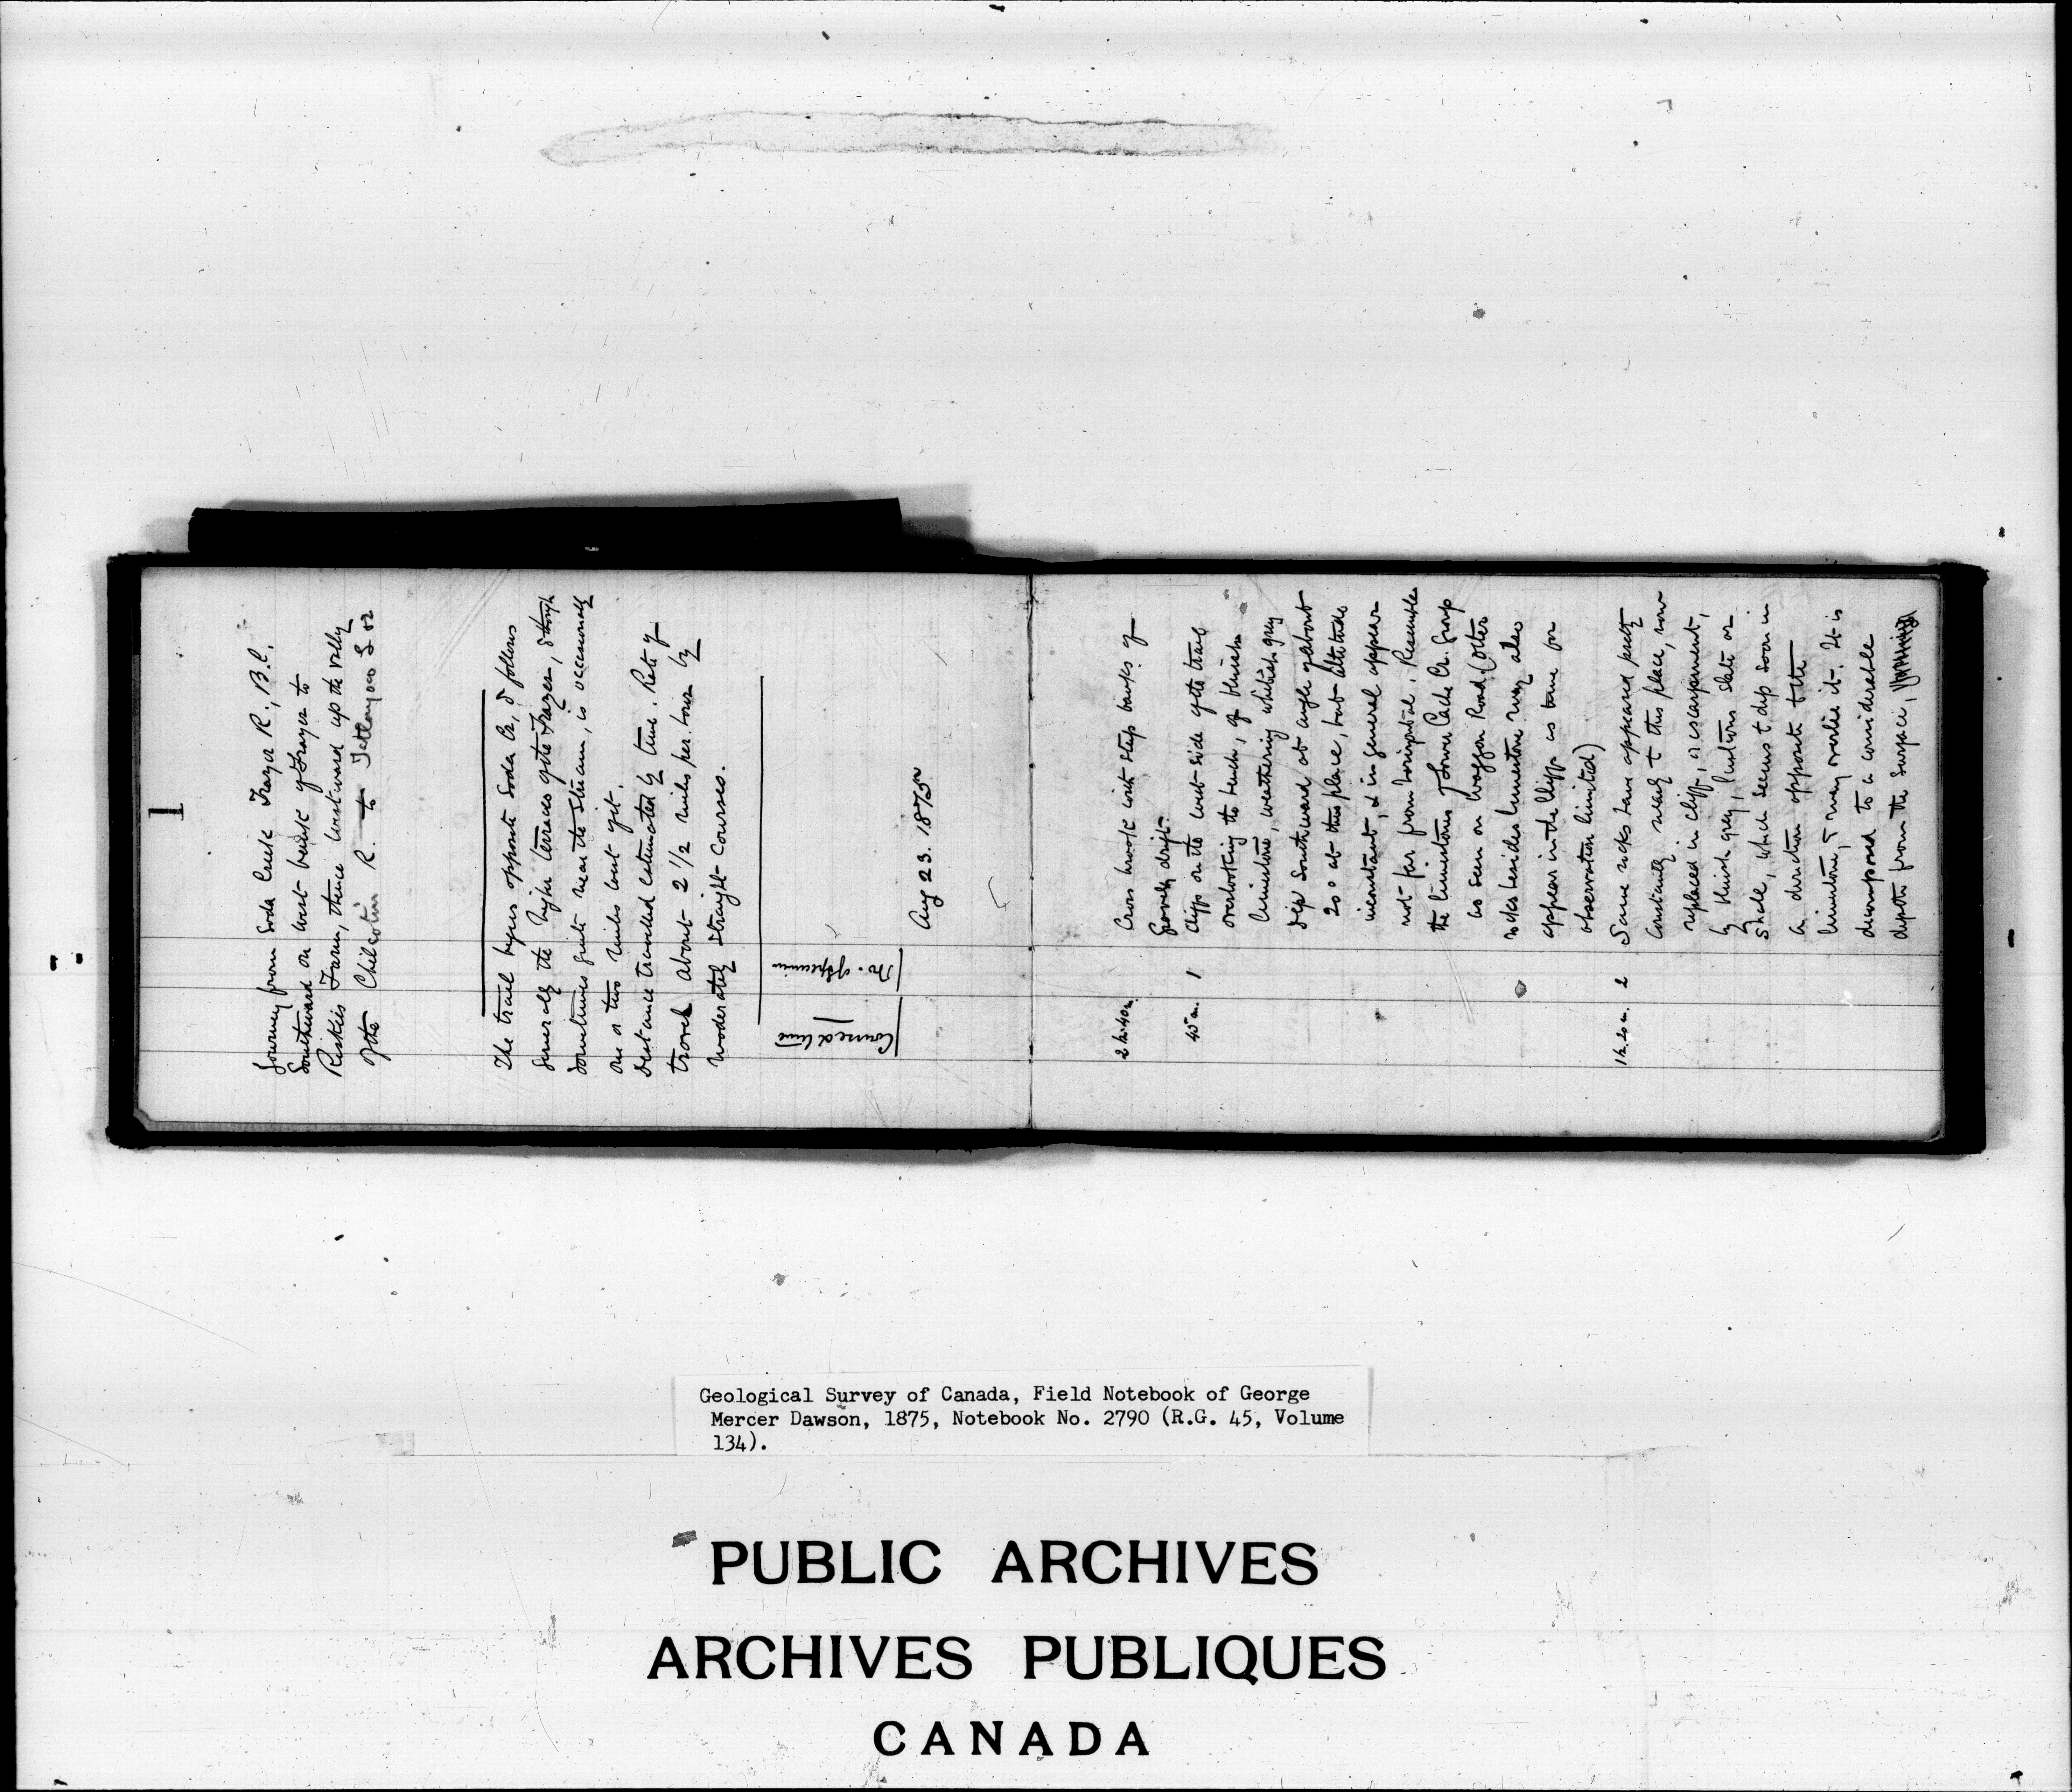 1
Journey from Soda Creek Frazer R., B.C.
Southward on west bank of Frazer to
Riskies Farm, thence westward up the valley
of the Chilcotin R. to Tatlayoco L &c
The trail begins opposite Soda Cr, & follows
generally the higher terraces of the Frazer, & though
sometimes quite near the stream, is occasionally
one or two miles out of it.
Distance travelled estimated by time. Rate of
travel about 2 1/2 miles per hour by
moderately straight courses.
Course & time
No. of specimen
Aug 23. 1875
2 h. 40 m. Cross brook with steep banks of
gravelly drift.
45 m. 1 Cliffs on the west side of the trail
overlooking the bench, of bluish
limestone, weathering whitish grey
Dip Southward at angle of about
20° at this place, but altitude
inconstant, & in general appear
not far from horizontal. Resembles
the limestones of Lower Cache Cr. Group
as seen on Waggon Road. (Other
rocks besides limestone may also
appear in the cliffs as time for
observation limited)
1 h. 20 m. 2 Same rocks have appeared pretty
constantly nearly to this place, now
replaced in cliff, or escarpment,
by bluish grey, lustrous slate or
shale, which seems to dip soon in
a direction opposite to the
limestone, & may overlie it. It is
decomposed to a considerable
depth from the surface,
Geological Survey of Canada, Field Notebook of George
Mercer Dawson, 1875, Notebook No. 2790 (R.G. 45, Volume
134).
PUBLIC ARCHIVES
ARCHIVES PUBLIQUES
CANADA